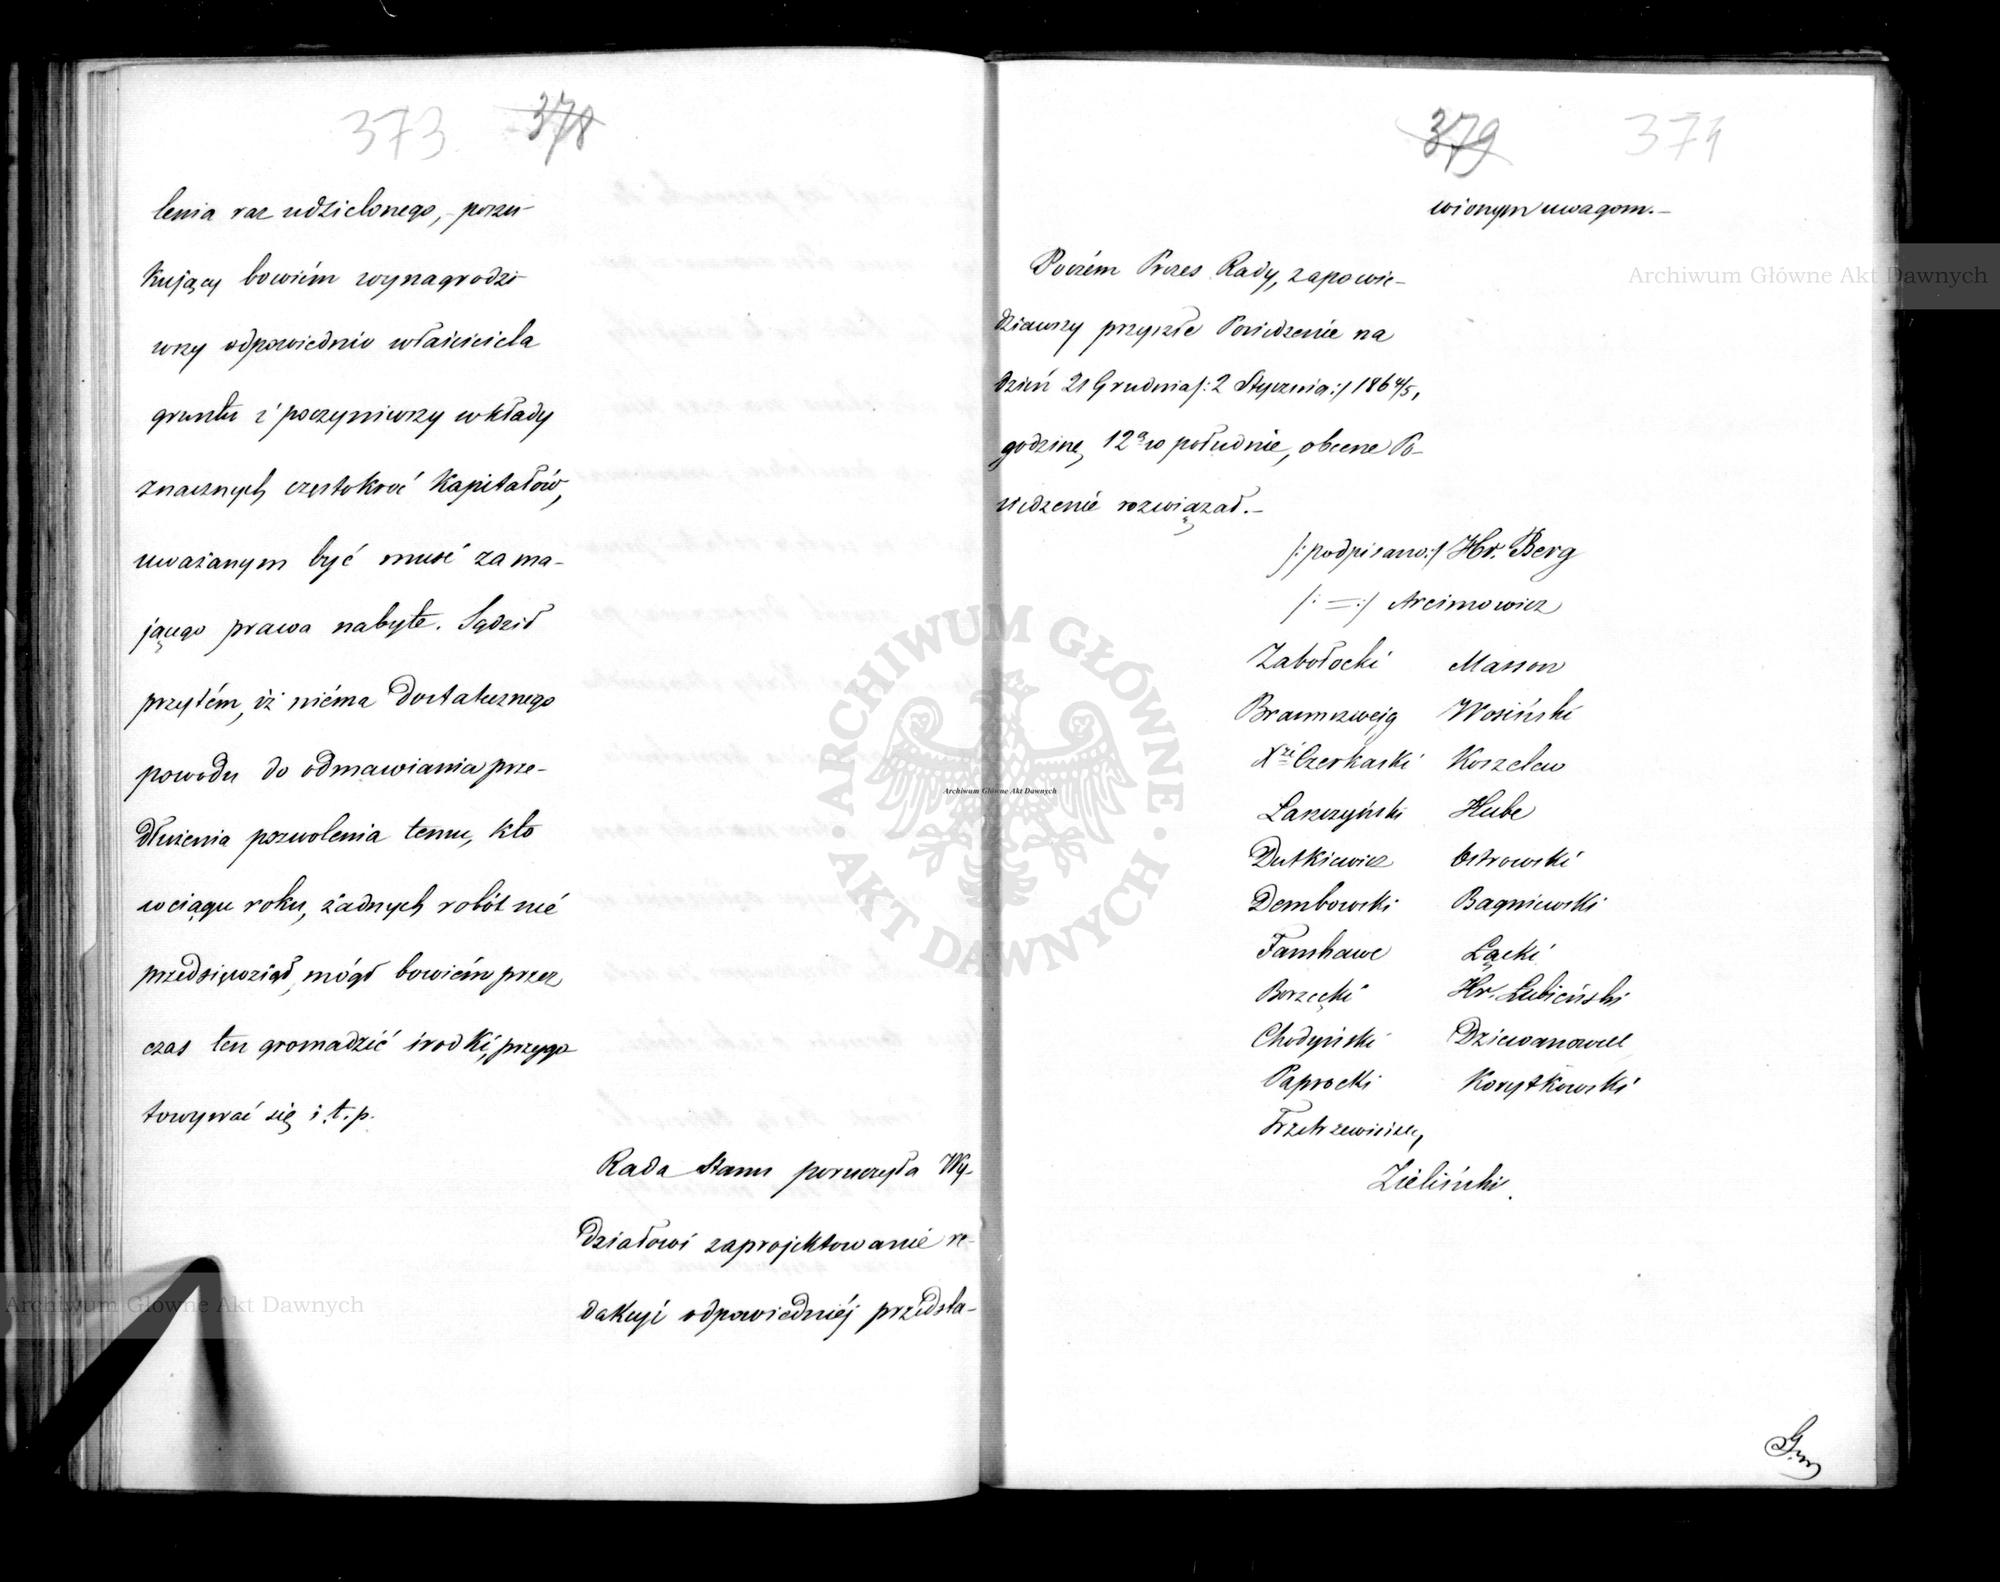 373 378
lenia raz udzielonego, poszu-
kujący bowiém wynagrodzi-
wszy odpowiednio właściciela
gruntu i poczyniwszy wkłady
znacznych częstokroć kapitałów,
uważanym być musi za ma-
jącego prawa nabyte. Sądził
przytém, iż niéma dostatecznego
powodu do odmawiania prze-
dłużenia pozwolenia temu, kto
w ciągu roku, żadnych robót nié
przedsięwziął, mógł bowiém przez
czas ten gromadzić środki, przygo
towywać się i t. p.
Rada Stanu poruczyła Wy-
działowi zaprojektowanie re-
dakcyi odpowiedniéj przedsta-
379 374
wionym uwagom.-
Poczém Prezes Rady, zapowie-
dziawszy przyszłe Posiedzenie na
dzień 21 Grudnia /: 2 Stycznia :/ 1864/5,
godzinę 12ą w południe, obecne Po-
siedzenie rozwiązał.-
/: podpisano :/ Hr. Berg
/: = :/ Arcimowicz
Zabołocki Masson
Braunszwejg Wosiński
Xże Czerkaski Koszelew
Laszczyński Hube
Dutkiewicz Ostrowski
Dembowski Bagniewski
Fanshawe Łącki
Borzęcki Hr. Łubieński
Chodyński Dziewanowski
Paprocki Korytkowski
Trzetrzewiński,
Zieliński.
Archiwum Główne Akt Dawnych
Archiwum Główne Akt Dawnych
Archiwum Główne Akt Dawnych
ARCHIWUM GŁÓWNE · AKT DAWNYCH ·